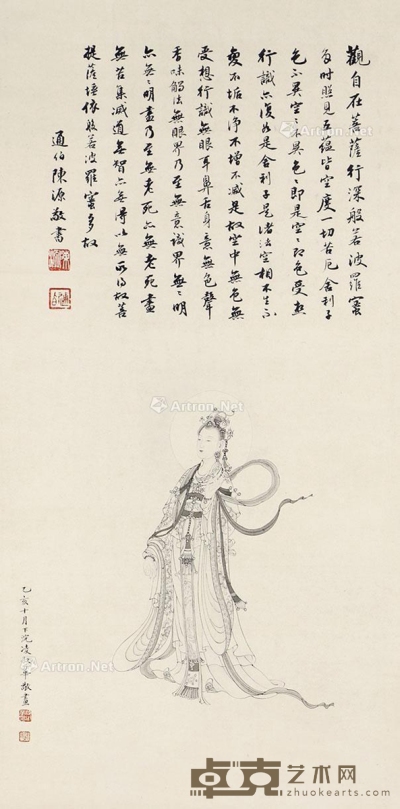 觀自在菩薩行深般若波羅蜜
多時照見五蘊皆空度一切苦厄舍利子
色不異空空不異色色即是空空即色受想
行識亦復如是舍利子是諸法空相不生不
滅不垢不淨不增不減是故空中無色無
受想行識無眼耳鼻舌身意無色聲
香味觸法無眼界乃至無意識界無無明
亦無無明盡乃至無老死亦無老死盡
無苦集滅道無智亦無得以無所得故菩
提薩埵依般若波羅蜜多故
通伯陳源敬書
乙亥十月下浣凌叔華敬畫
Artron.Net
卓克艺术网
www.zhuokearts.com